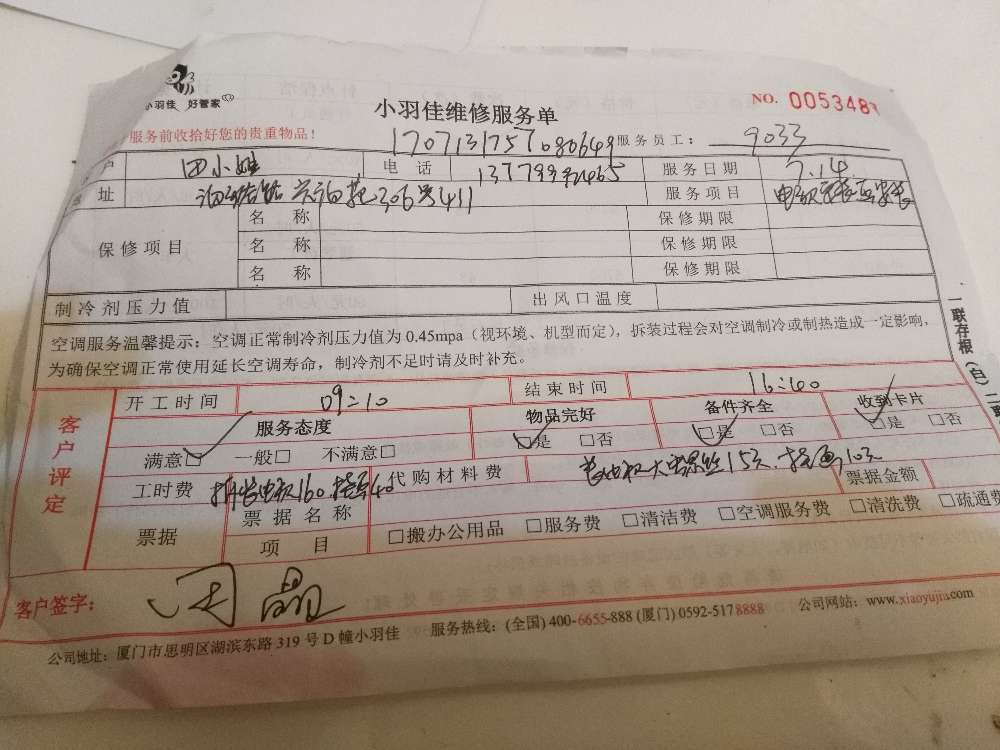 小羽佳 好管家
小羽佳维修服务单
NO. 005348
服务前收拾好您的贵重物品！
170713175708064 服务员工： 9033
户 田小姐 电 话 服务日期 7.14
址 306号411 服务项目
保修项目 名 称 保修期限
名 称 保修期限
名 称 保修期限
制冷剂压力值 出风口温度
空调服务温馨提示：空调正常制冷剂压力值为0.45mpa（视环境、机型而定），拆装过程会对空调制冷或制热造成一定影响，
为确保空调正常使用延长空调寿命，制冷剂不足时请及时补充。
一联存根（白）二联
客户评定
开工时间 09:10 结束时间 16:40
服务态度 物品完好 备件齐全 收到卡片
满意□ 一般□ 不满意□ □是 □否 □是 □否 □是 □否
工时费 160 40 代购材料费 15元 10元 票据金额
票据 票据名称 □搬办公用品 □服务费 □清洁费 □空调服务费 □清洗费 □疏通费
项 目
客户签字： 田晶
公司地址：厦门市思明区湖滨东路319号D幢小羽佳 服务热线：(全国) 400-6655-888 (厦门) 0592-5178888 公司网站：www.xiaoyujia.com